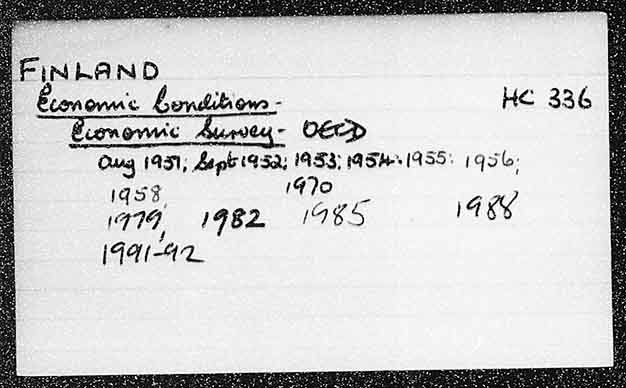 FINLAND
Economic Conditions - HC 336
Economic Survey - OECD
Aug 1951; Sept 1952; 1953; 1954; 1955; 1956;
1958, 1970
1979, 1982 1985 1988
1991-92